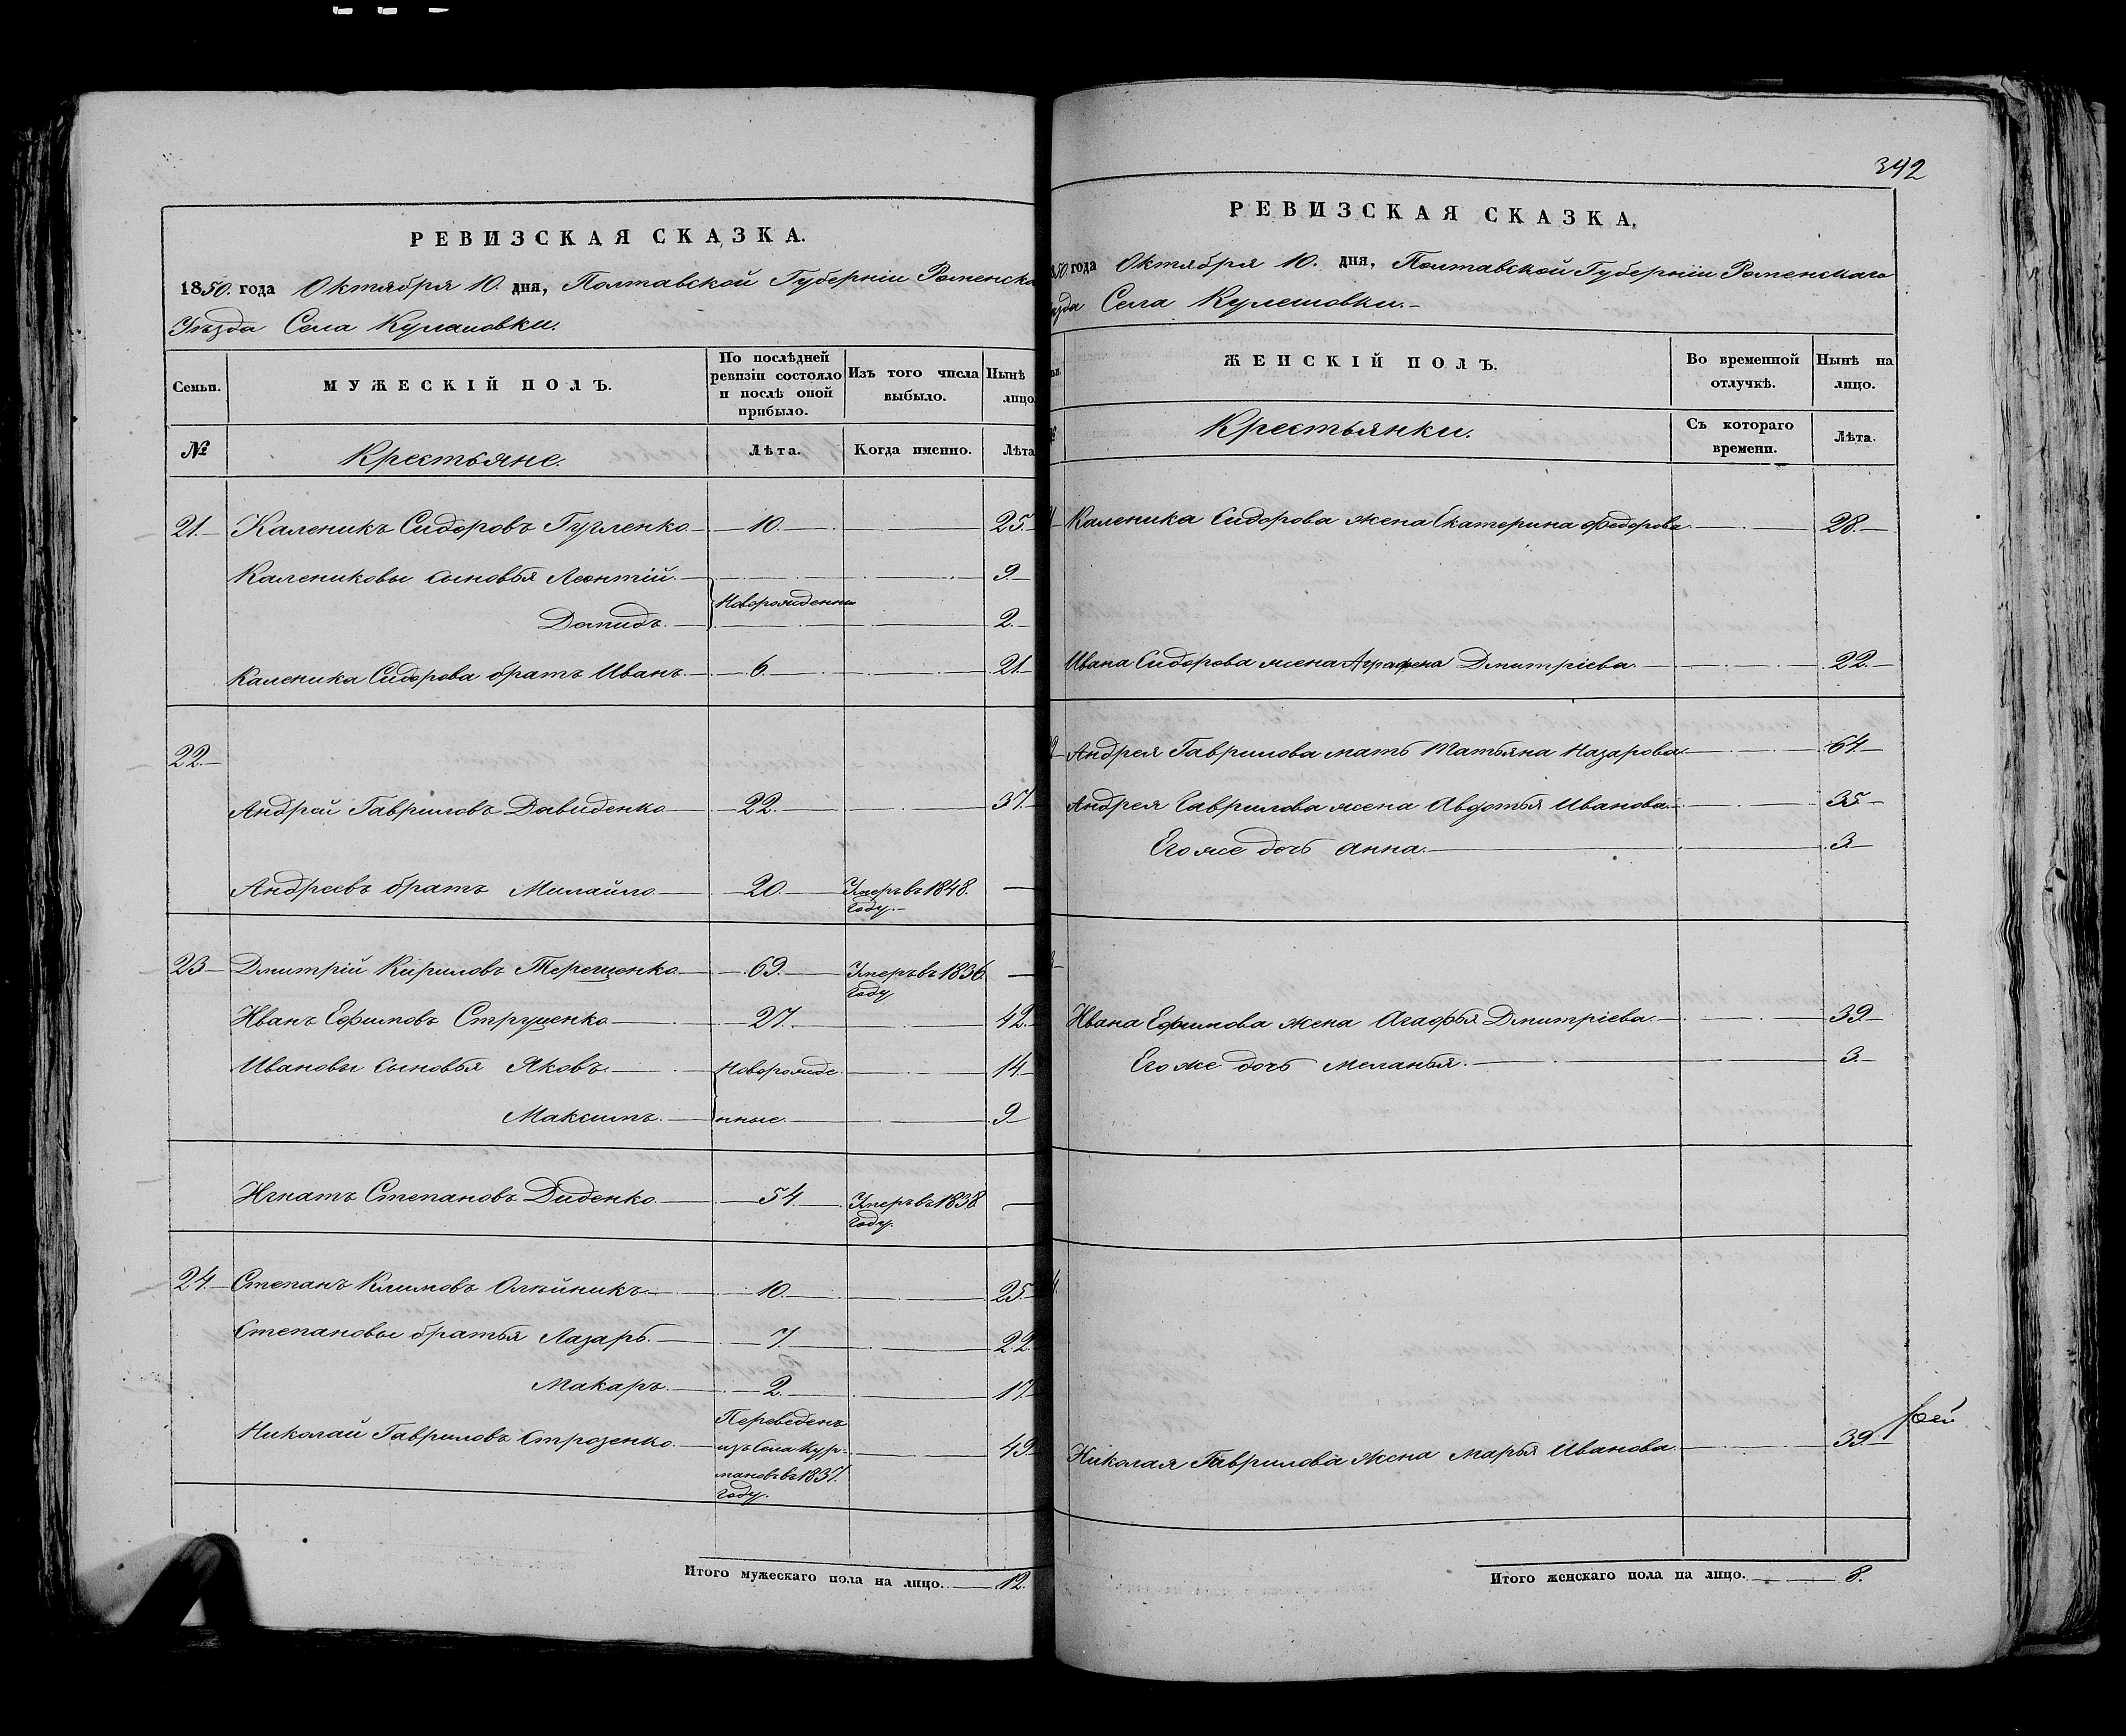 РЕВИЗСКАЯ СКАЗКА.
1850. года Октября 10. дня, Полтавской Губерніи Роменска
Уѣзда Села Кулешовки.
Семьи.
МУЖЕСКІЙ ПОЛЪ.
По послѣдней ревизіи состояло и послѣ оной прибыло.
Изъ того числа выбыло.
Нынѣ лицо
№
Крестьяне.
Лѣта.
Когда именно.
Лѣта
21. Каленикъ Сидоровъ Гугленко 10. 25.
Калениковы сыновья Леонтій 9
Новорожденные
Демидъ. 2.
Каленика Сидорова братъ Иванъ. 6. 21
22
Андрей Гавриловъ Давиденко 22. 37.
Андреевъ братъ Михайло 20. Умеръ въ 1848.
Году.
23 Дмитрій Кириловъ Терещенко 69. Умеръ въ 1836.
Году
Иванъ Ефимовъ 27. 42.
Ивановы сыновья Яковъ. Новорожде 14.
Максимъ. нные. 9
Игнатъ Степановъ Диденко 54. Умеръ въ 1838.
Году.
24. Степанъ Климовъ Олѣйникъ. 10. 25.
Степановы братья Лазарь. 7. 22.
Макаръ. 2. 17.
Николай Гавриловъ Строзенко. Переведенъ
изъ Села Кур- 49
мановъ въ 1837.
Году.
Итого мужескаго пола на лицо. 12.
342
РЕВИЗСКАЯ СКАЗКА.
50. года Октября 10. дня, Полтавской Губерніи Роменскаго
зда Села Кулешовки.
ЖЕНСКІЙ ПОЛЪ.
Во временной отлучкѣ.
Нынѣ на лицо.
Крестьянки.
Съ котораго времени.
Лѣта.
Каленика Сидорова жена Екатерина Федорова 28.
Ивана Сидорова жена Аграфена Дмитріева. 22.
Андрея Гаврилова мать Татьяна Назарова 64
Андрея Гаврилова жена Авдотья Иванова 35.
Его же дочь Анна. 3.
Ивана Ефимова жена Агафья Дмитріева. 39
Его же дочь Меланья. 3.
Николая Гаврилова жена Марья Иванова 39
Итого женскаго пола на лицо. 8.